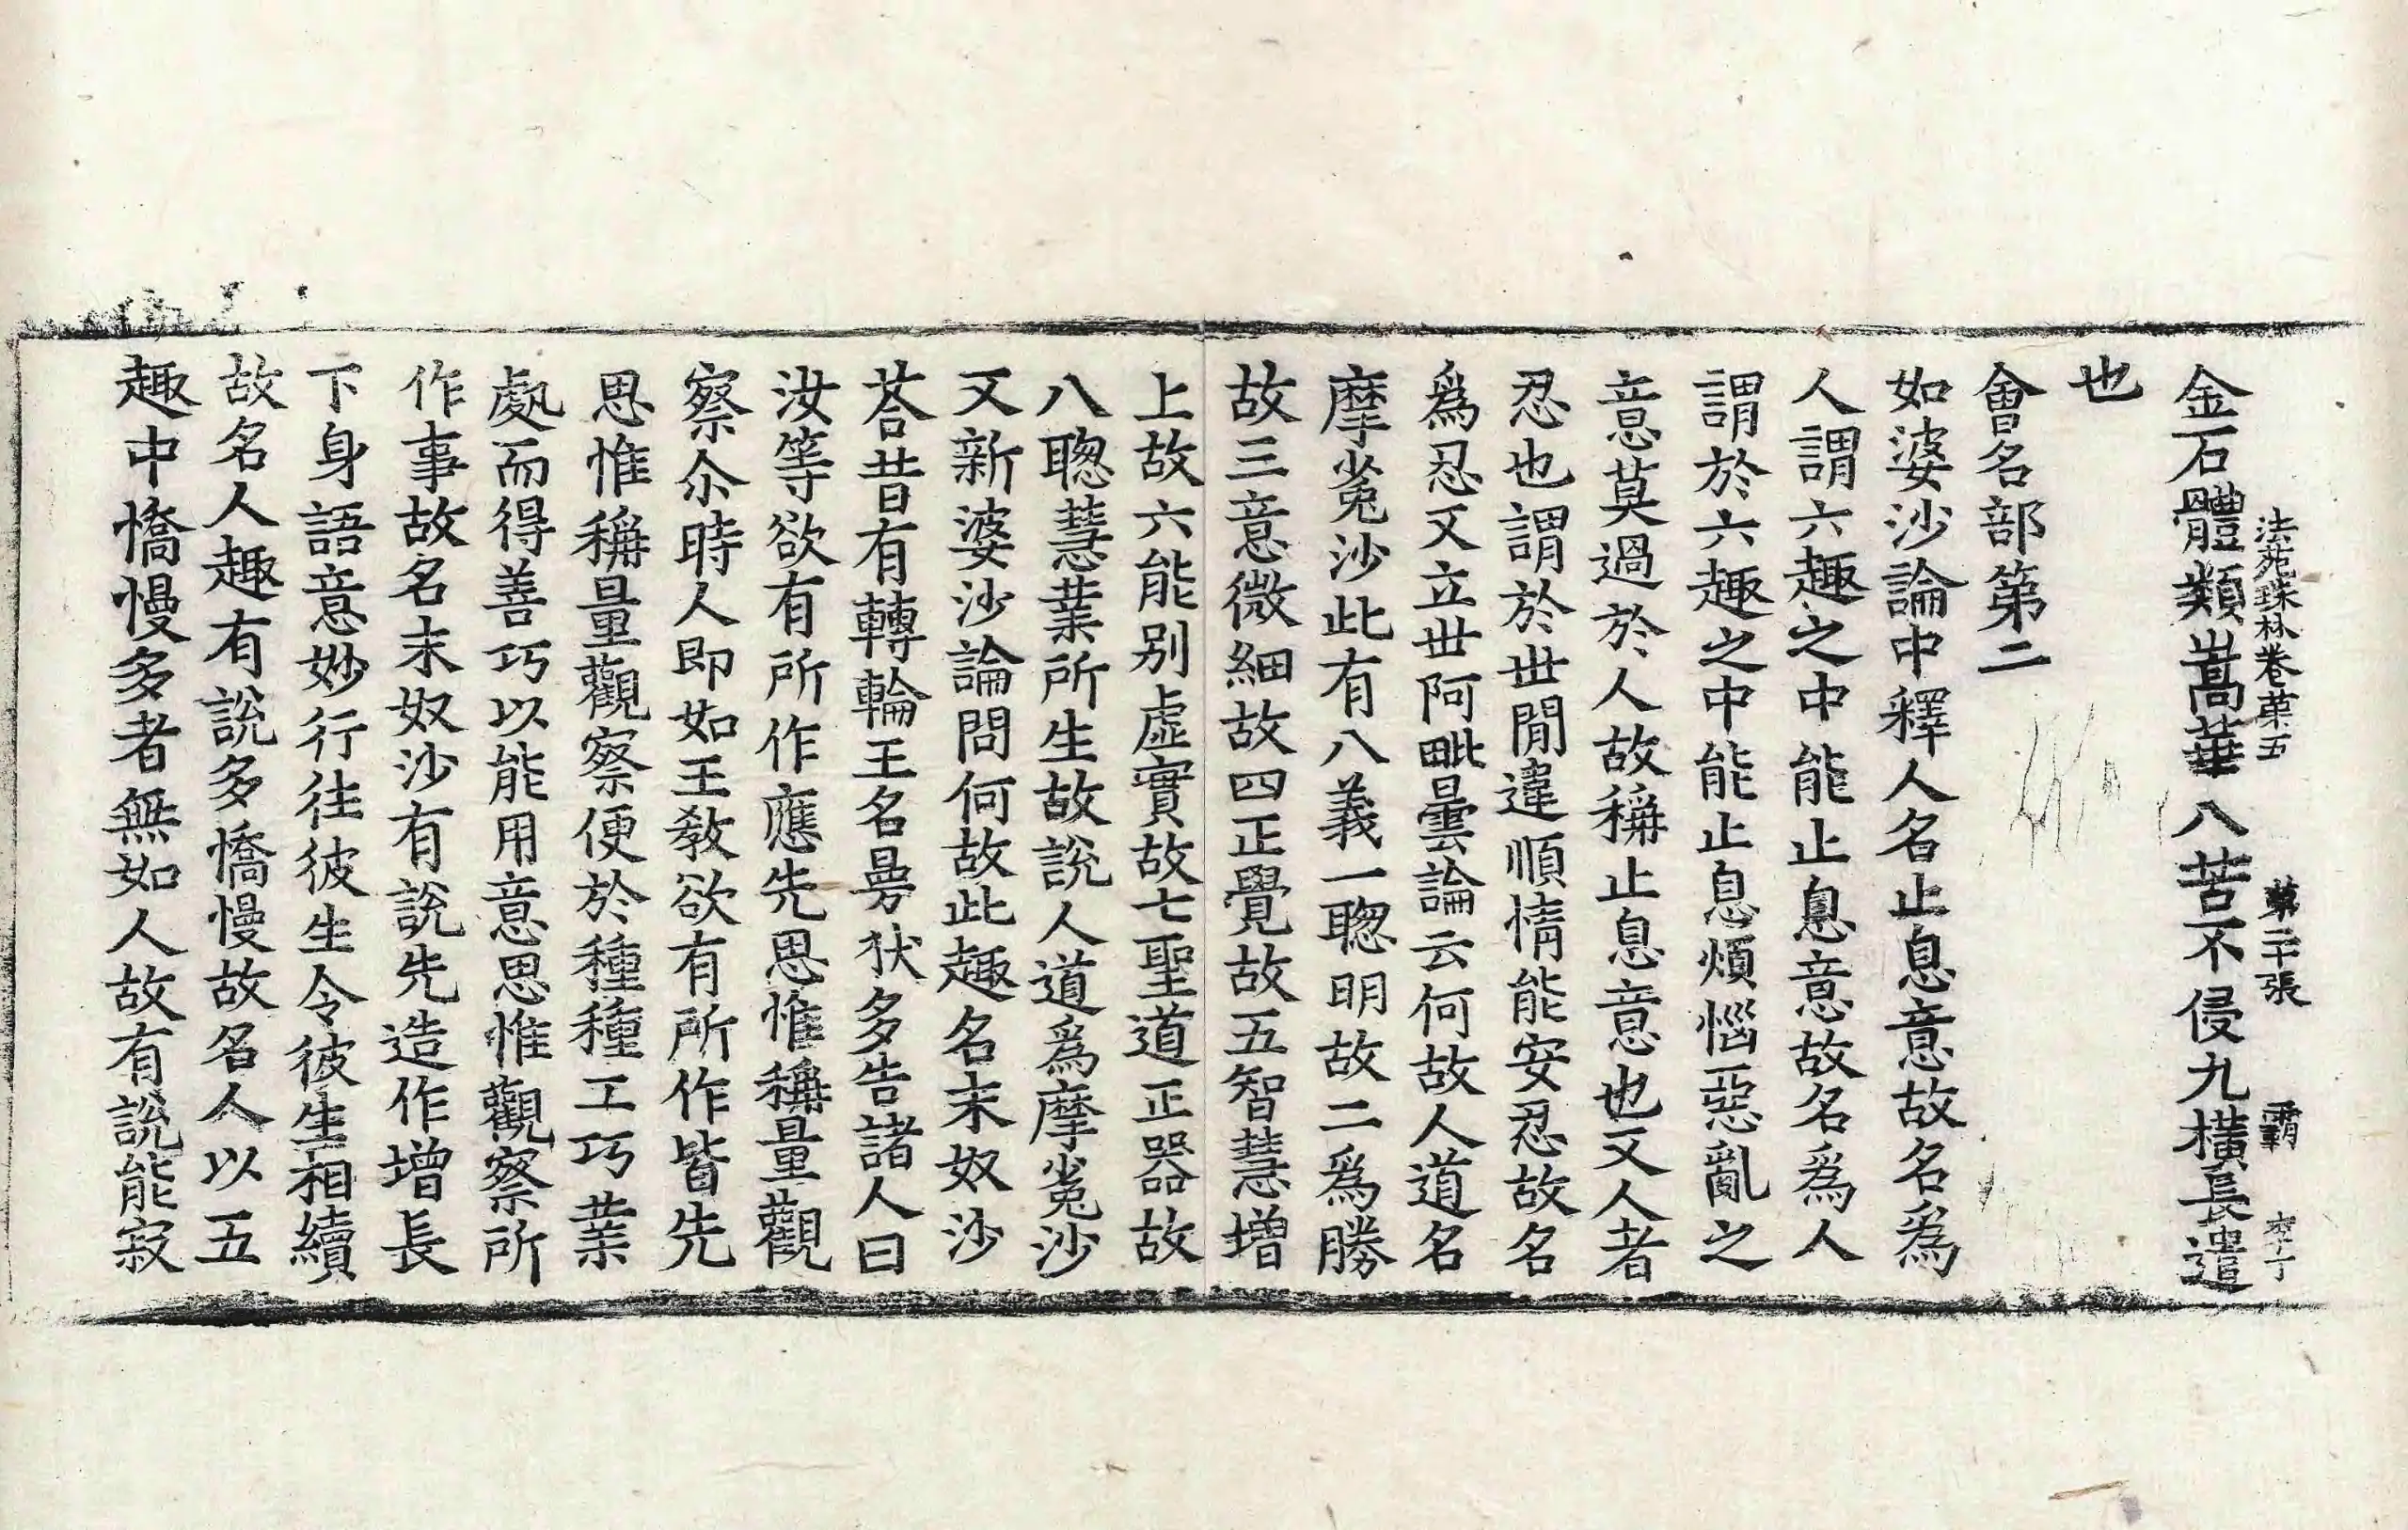 法苑珠林卷第五　第二十張　霸
金石體類嵩華八苦不侵九橫長遣
也
會名部第二
如婆沙論中釋人名止息意故名爲
人謂六趣之中能止息意故名爲人
謂於六趣之中能止息煩惱惡亂之
意莫過於人故稱止息意也又人者
忍也謂於世閒違順情能安忍故名
爲忍又立世阿毗曇論云何故人道名
摩㝹沙此有八義一聦明故二爲勝
故三意微細故四正覺故五智慧增
上故六能別虛實故七聖道正器故
八聦慧業所生故說人道爲摩㝹沙
又新婆沙論問何故此趣名末奴沙
荅昔有轉輪王名曼馱多告諸人曰
汝等欲有所作應先思惟稱量觀
察尒時人即如王敎欲有所作皆先
思惟稱量觀察便於種種工巧業
處而得善巧以能用意思惟觀察所
作事故名末奴沙有說先造作增長
下身語意妙行往彼生令彼生相續
故名人趣有說多憍慢故名人以五
趣中憍慢多者無如人故有說能寂